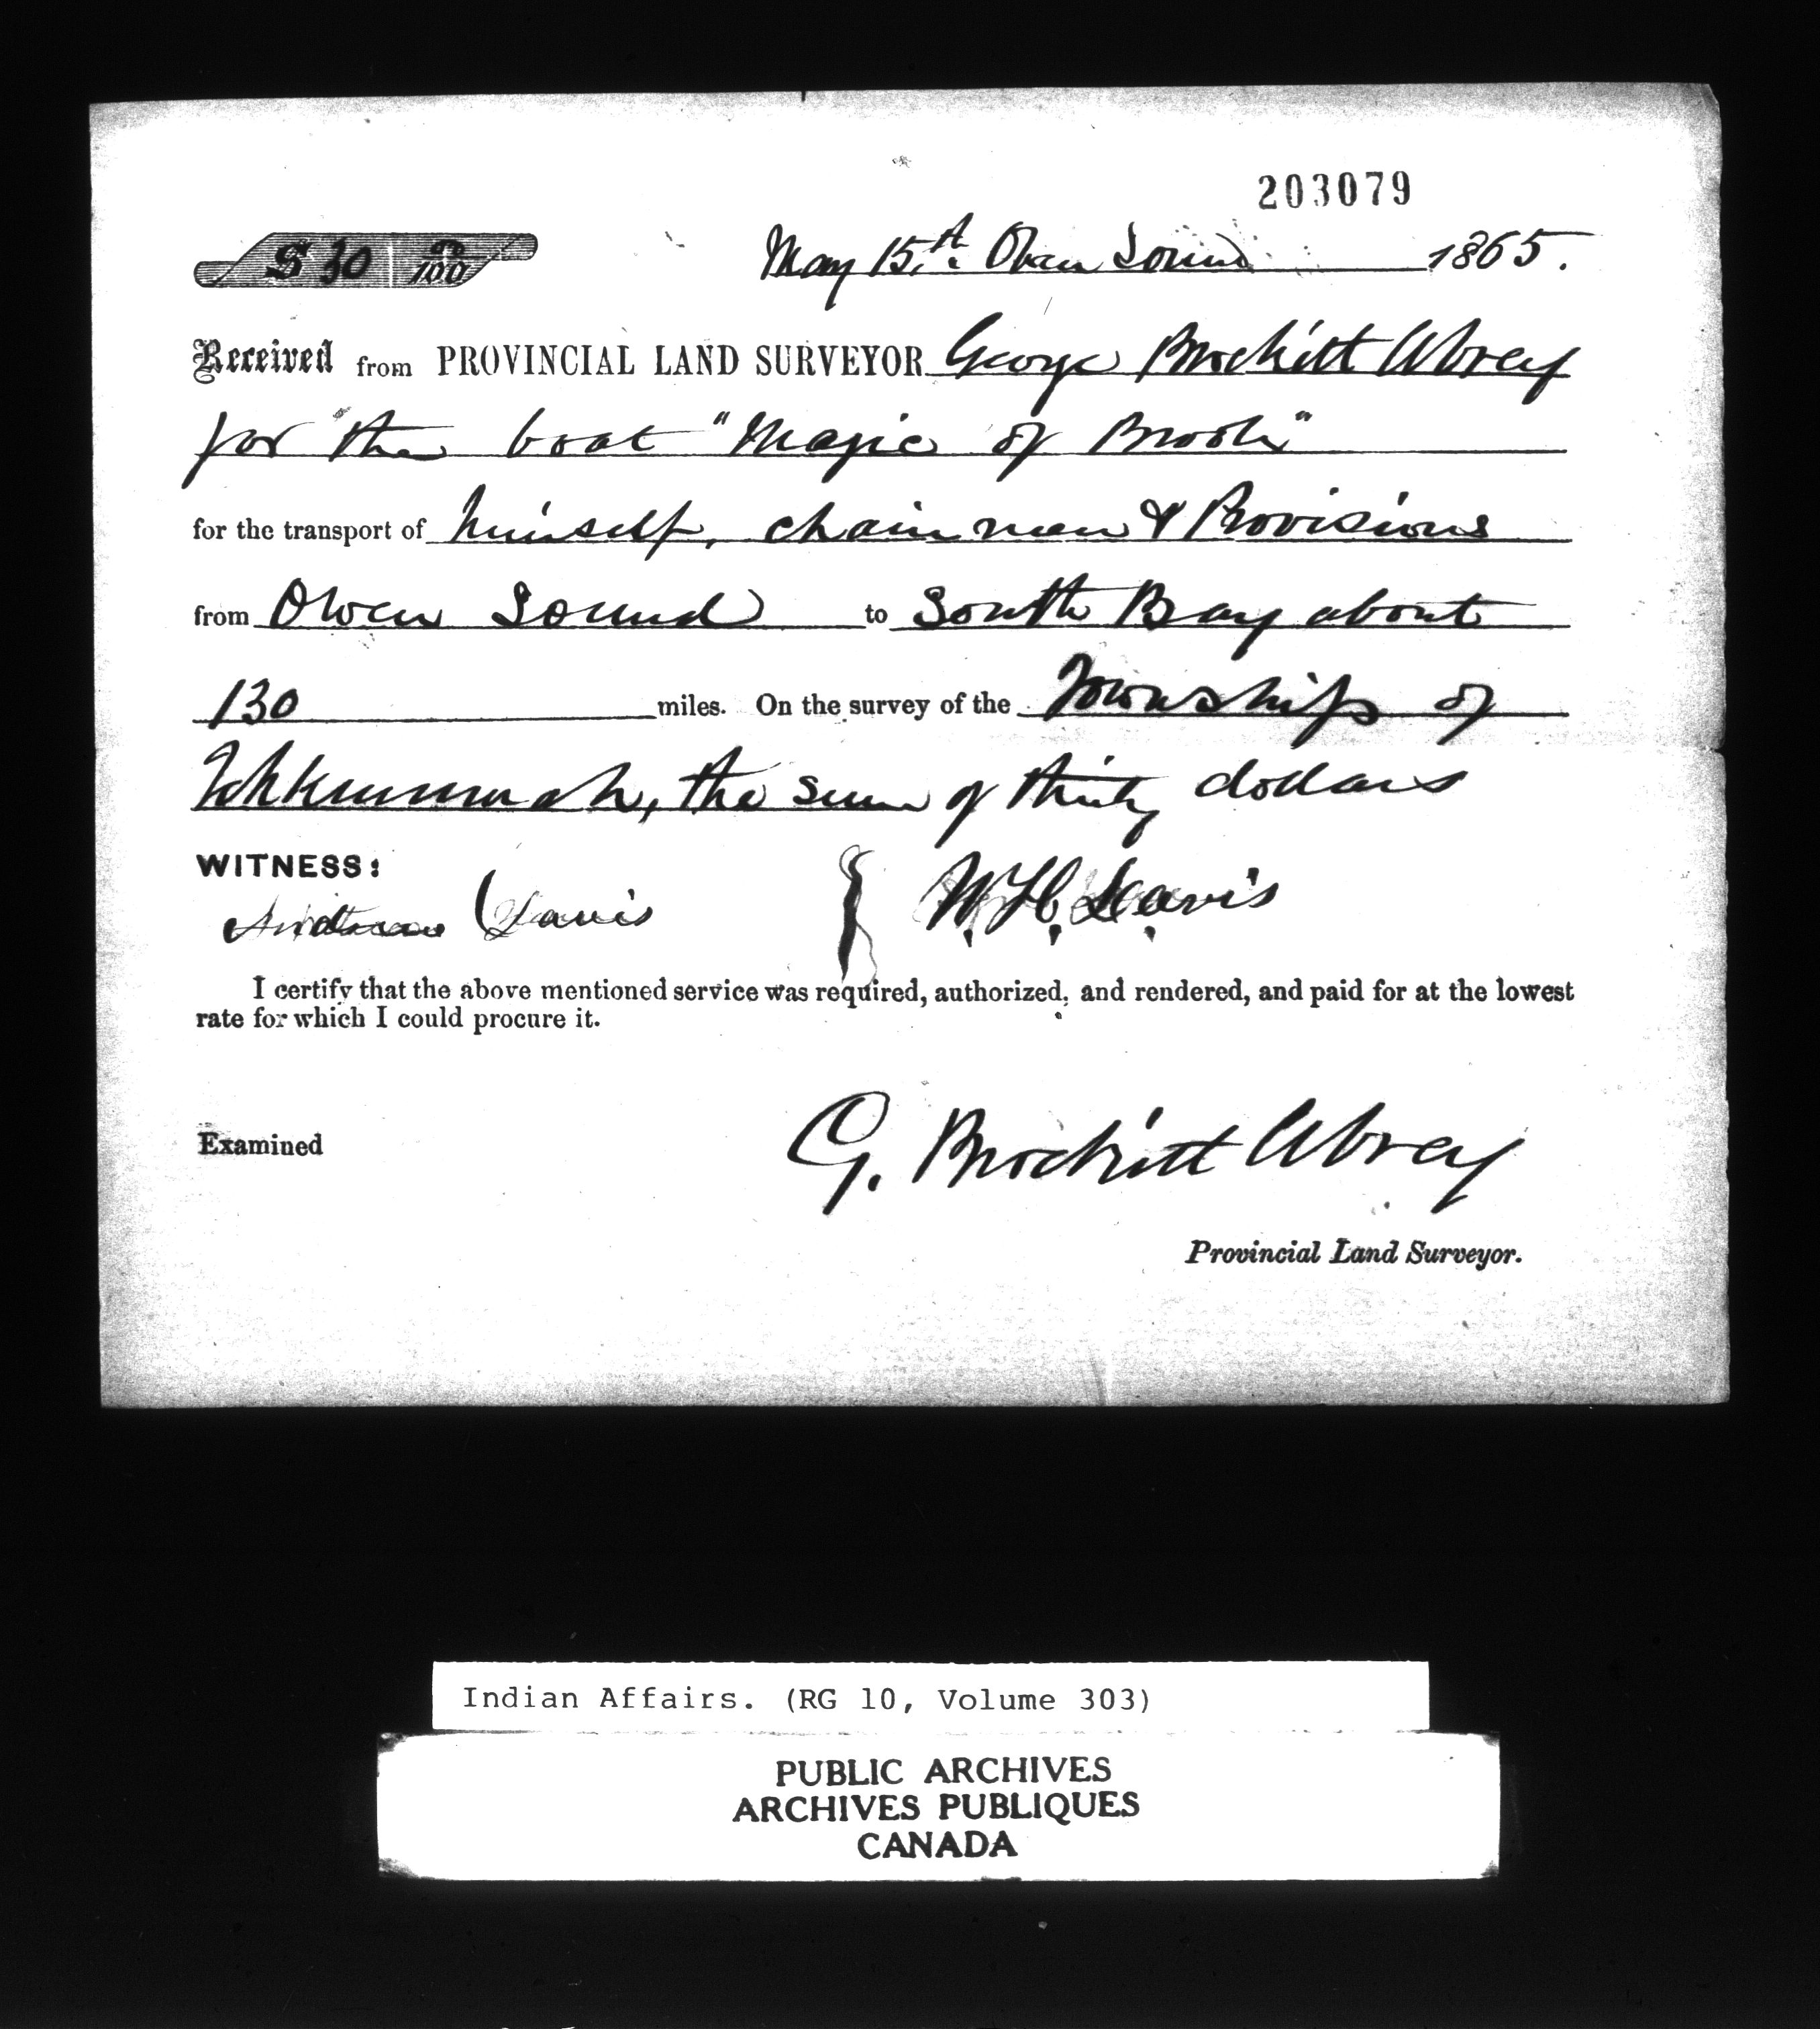 203079
$ 30 00/100
May 15th. Owen Sound 1865.
Received from PROVINCIAL LAND SURVEYOR George Brockitt Abrey
for the boat "Magic of"
for the transport of himself, chainmen & Provisions
from Owen Sound to South Bay about
130 miles. On the survey of the Township of
the sum of thirty dollars
WITNESS:
Davis W. H. Davis
I certify that the above mentioned service was required, authorized, and rendered, and paid for at the lowest
rate for which I could procure it.
Examined
G. Brockitt Abrey
Provincial Land Surveyor.
Indian Affairs. (RG 10, Volume 303)
PUBLIC ARCHIVES
ARCHIVES PUBLIQUES
CANADA